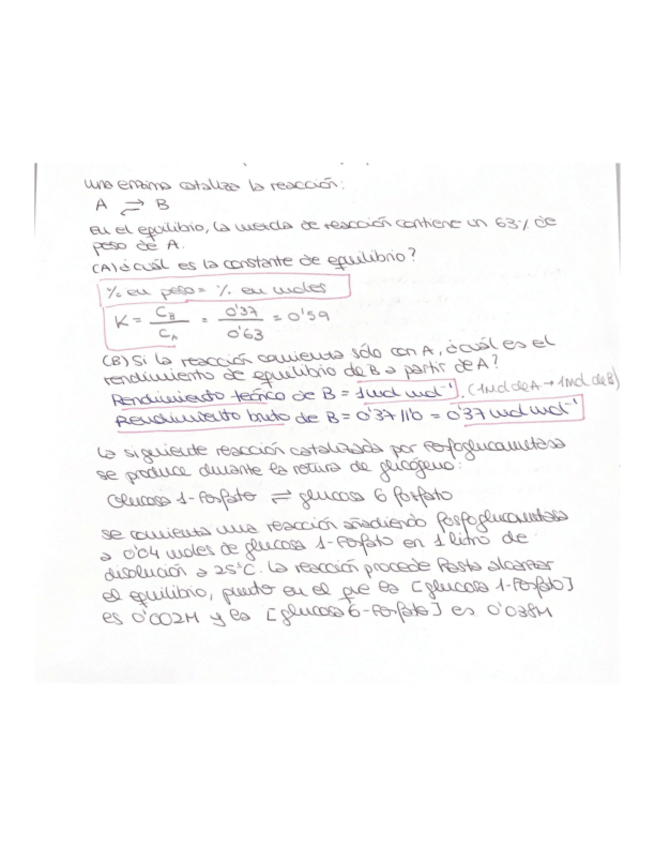 una enzima cataliza la reacción:
A ⇌ B
En el equilibrio, la mezcla de reacción contiene un 63% de
peso de A.
(A) ¿cuál es la constante de equilibrio?
% en peso = % en moles
K = C_B / C_A = 0'37 / 0'63 = 0'59
(B) Si la reacción comienza sólo con A, ¿cuál es el
rendimiento de equilibrio de B a partir de A?
Rendimiento teórico de B = 1 mol mol⁻¹. (1 mol de A → 1 mol de B)
Rendimiento bruto de B = 0'37/1'0 = 0'37 mol mol⁻¹
La siguiente reacción catalizada por fosfoglucomutasa
se produce durante la rotura de glucógeno:
Glucosa 1-fosfato ⇌ glucosa 6 fosfato
se comienza una reacción añadiendo fosfoglucomutasa
a 0'04 moles de glucosa 1-fosfato en 1 litro de
disolución a 25°C. La reacción procede hasta alcanzar
el equilibrio, punto en el que la [glucosa 1-fosfato]
es 0'002M y la [glucosa 6-fosfato] es 0'038M